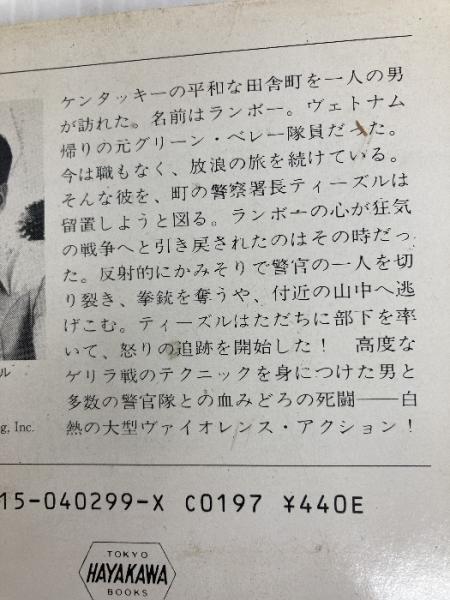 ケンタッキーの平和な田舎町を一人の男
が訪れた。名前はランボー。ヴェトナム
帰りの元グリーン・ベレー隊員だった。
今は職もなく、放浪の旅を続けている。
そんな彼を、町の警察署長ティーズルは
留置しようと図る。ランボーの心が狂気
の戦争へと引き戻されたのはその時だっ
た。反射的にかみそりで警官の一人を切
り裂き、拳銃を奪うや、付近の山中へ逃
げこむ。ティーズルはただちに部下を率
いて、怒りの追跡を開始した!　高度な
ゲリラ戦のテクニックを身につけた男と
多数の警官隊との血みどろの死闘――白
熱の大型ヴァイオレンス・アクション!
ル
g, Inc.
15-040299-X C0197 ¥440E
TOKYO
HAYAKAWA
BOOKS